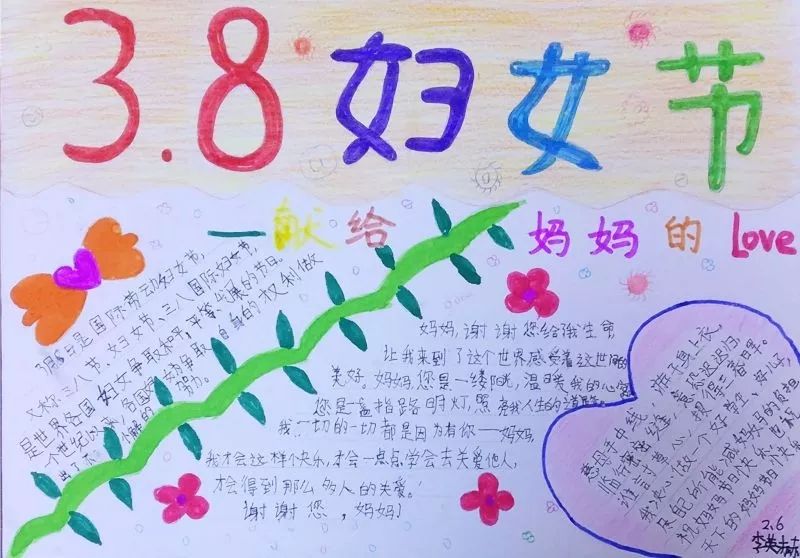 3.8妇女节
一献给妈妈的Love
3月8日是国际劳动妇女节,
又称:三八节、妇女节、三八国际妇女节,
是世界各国妇女争取和平,平等,发展的节日。
个世纪以来,各国妇女为争取自己的权利做
出了不懈的努力。
妈妈,谢谢您给我生命
让我来到了这个世界感受着这世间的
美好。妈妈,您是一缕阳光,温暖我的心窝
您是一盏指路明灯,照亮我人生的道路
我一切的一切都是因为有你——妈妈,
我才会这样个快乐,才会一点点学会去关爱他人,
才会得到那么多人的关爱。!
谢谢您,妈妈!
慈母手中线,游子身上衣。
临行密密缝,意恐迟迟归。
谁言寸草心,报得三春晖。
我决心做一个好学生,好
祝妈妈节日快乐,也祝
天下的妈妈节日快乐
2.6